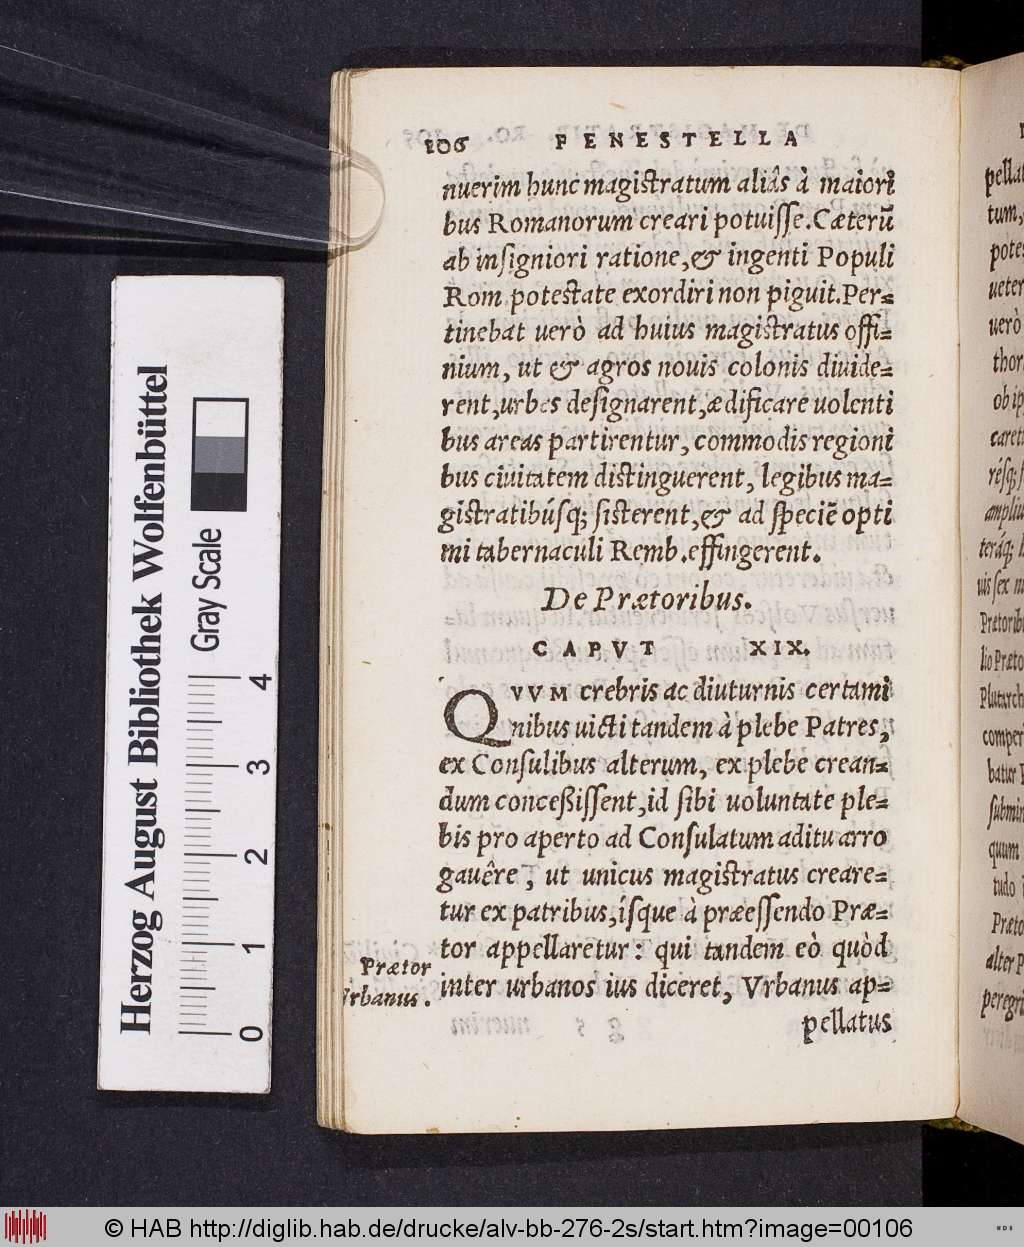 106 FENESTELLA
nuerim hunc magistratum aliâs à maiori
bus Romanorum creari potuisse. Cæterũ
ab insigniori ratione, & ingenti Populi
Rom potestate exordiri non piguit. Per=
tinebat uerò ad huius magistratus offi=
nium, ut & agros nouis colonis diuide=
rent, urbes designarent, ædificare uolenti
bus areas partirentur, commodis regioni
bus ciuitatem distinguerent, legibus ma=
gistratibúsq; sisterent, & ad speciẽ opti
mi tabernaculi Remb. effingerent.
De Prætoribus.
CAPVT XIX.
QVVM crebris ac diuturnis certami
nibus uicti tandem à plebe Patres,
ex Consulibus alterum, ex plebe crean=
dum conceßissent, id sibi uoluntate ple=
bis pro aperto ad Consulatum aditu arro
gauêre, ut unicus magistratus creare=
tur ex patribus, ísque à præessendo Præ=
tor appellaretur: qui tandem eò quòd
inter urbanos ius diceret, Vrbanus ap=
pellatus
Prætor
Vrbanus.
pella
tum,
uerò
thor
ob ip
ampliu
uis sex
Prætorib
lio Præto
Plutarch
comper
submin
quum
tudo
Præto
alter P
peregri
Herzog August Bibliothek Wolfenbüttel
Gray Scale
0 1 2 3 4
© HAB http://diglib.hab.de/drucke/alv-bb-276-2s/start.htm?image=00106
WDB